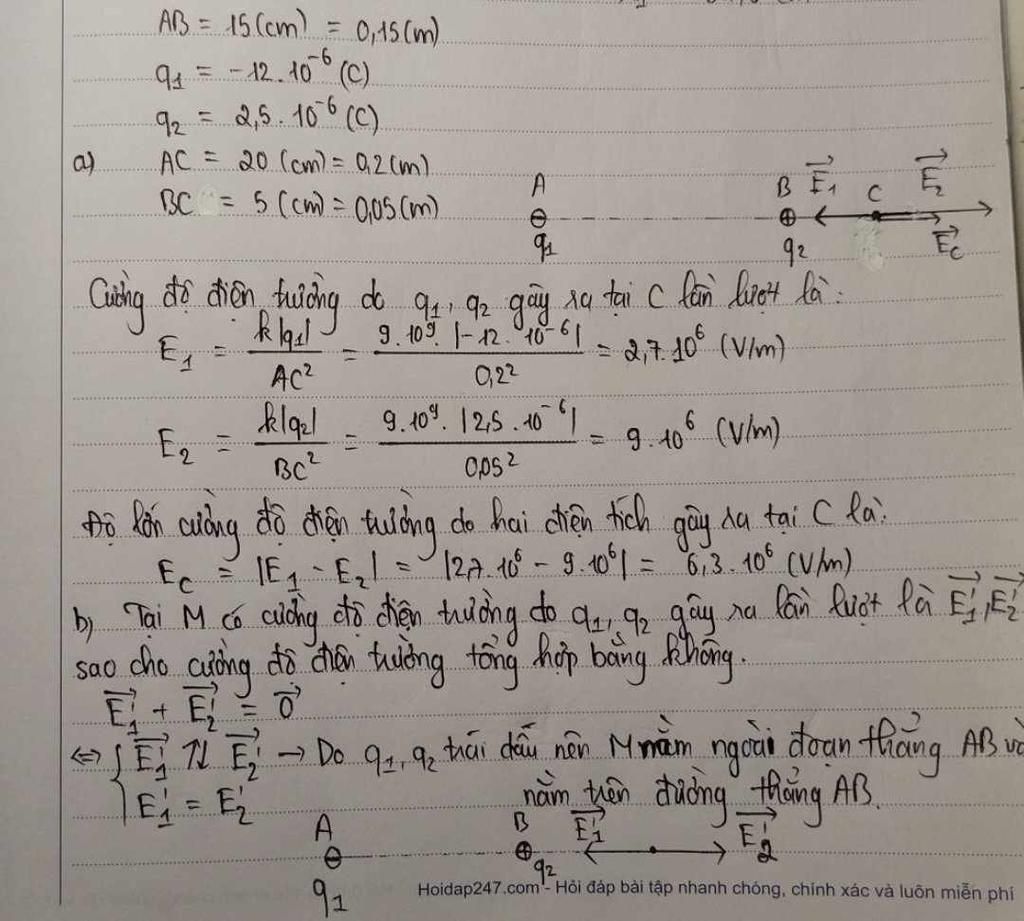 AB = 15(cm) = 0,15(m)
q₁ = -12.10⁻⁶ (C)
q₂ = 2,5.10⁻⁶ (C)
a) AC = 20 (cm) = 0,2(m)
BC = 5 (cm) = 0,05(m)
A B E₁→ C E₂→
⊖ ⊕
q₁ q₂ E_C→
Cường độ điện trường do q₁, q₂ gây ra tại C lần lượt là:
E₁ = k|q₁| / AC² = 9.10⁹.|-12.10⁻⁶| / 0,2² = 2,7.10⁶ (V/m)
E₂ = k|q₂| / BC² = 9.10⁹.|2,5.10⁻⁶| / 0,05² = 9.10⁶ (V/m)
Độ lớn cường độ điện trường do hai điện tích gây ra tại C là:
E_C = |E₁ - E₂| = |2,7.10⁶ - 9.10⁶| = 6,3.10⁶ (V/m)
b) Tại M có cường độ điện trường do q₁, q₂ gây ra lần lượt là E₁'→, E₂'→
sao cho cường độ điện trường tổng hợp bằng không.
E₁'→ + E₂'→ = 0→
⇔ { E₁'→ ↑↓ E₂'→ → Do q₁, q₂ trái dấu nên M nằm ngoài đoạn thẳng AB và
E₁' = E₂' nằm trên đường thẳng AB.
A B E₁'→ E₂'→
⊖ ⊕
q₁ q₂
Hoidap247.com - Hỏi đáp bài tập nhanh chóng, chính xác và luôn miễn phí